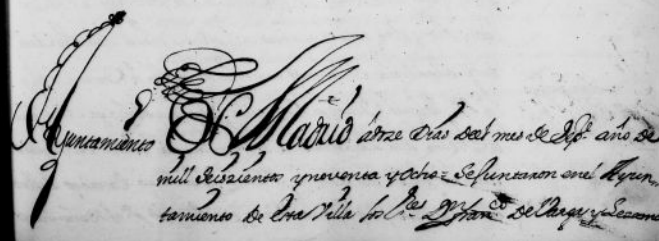 Ayuntamiento En Madrid a doze dias del mes de Sepe. año de
mill seiszientos y noventa y ocho = Se Juntaron en el Ayun-
tamiento de esta Villa los Sres. Dn. franco. de Vargas y Lezama